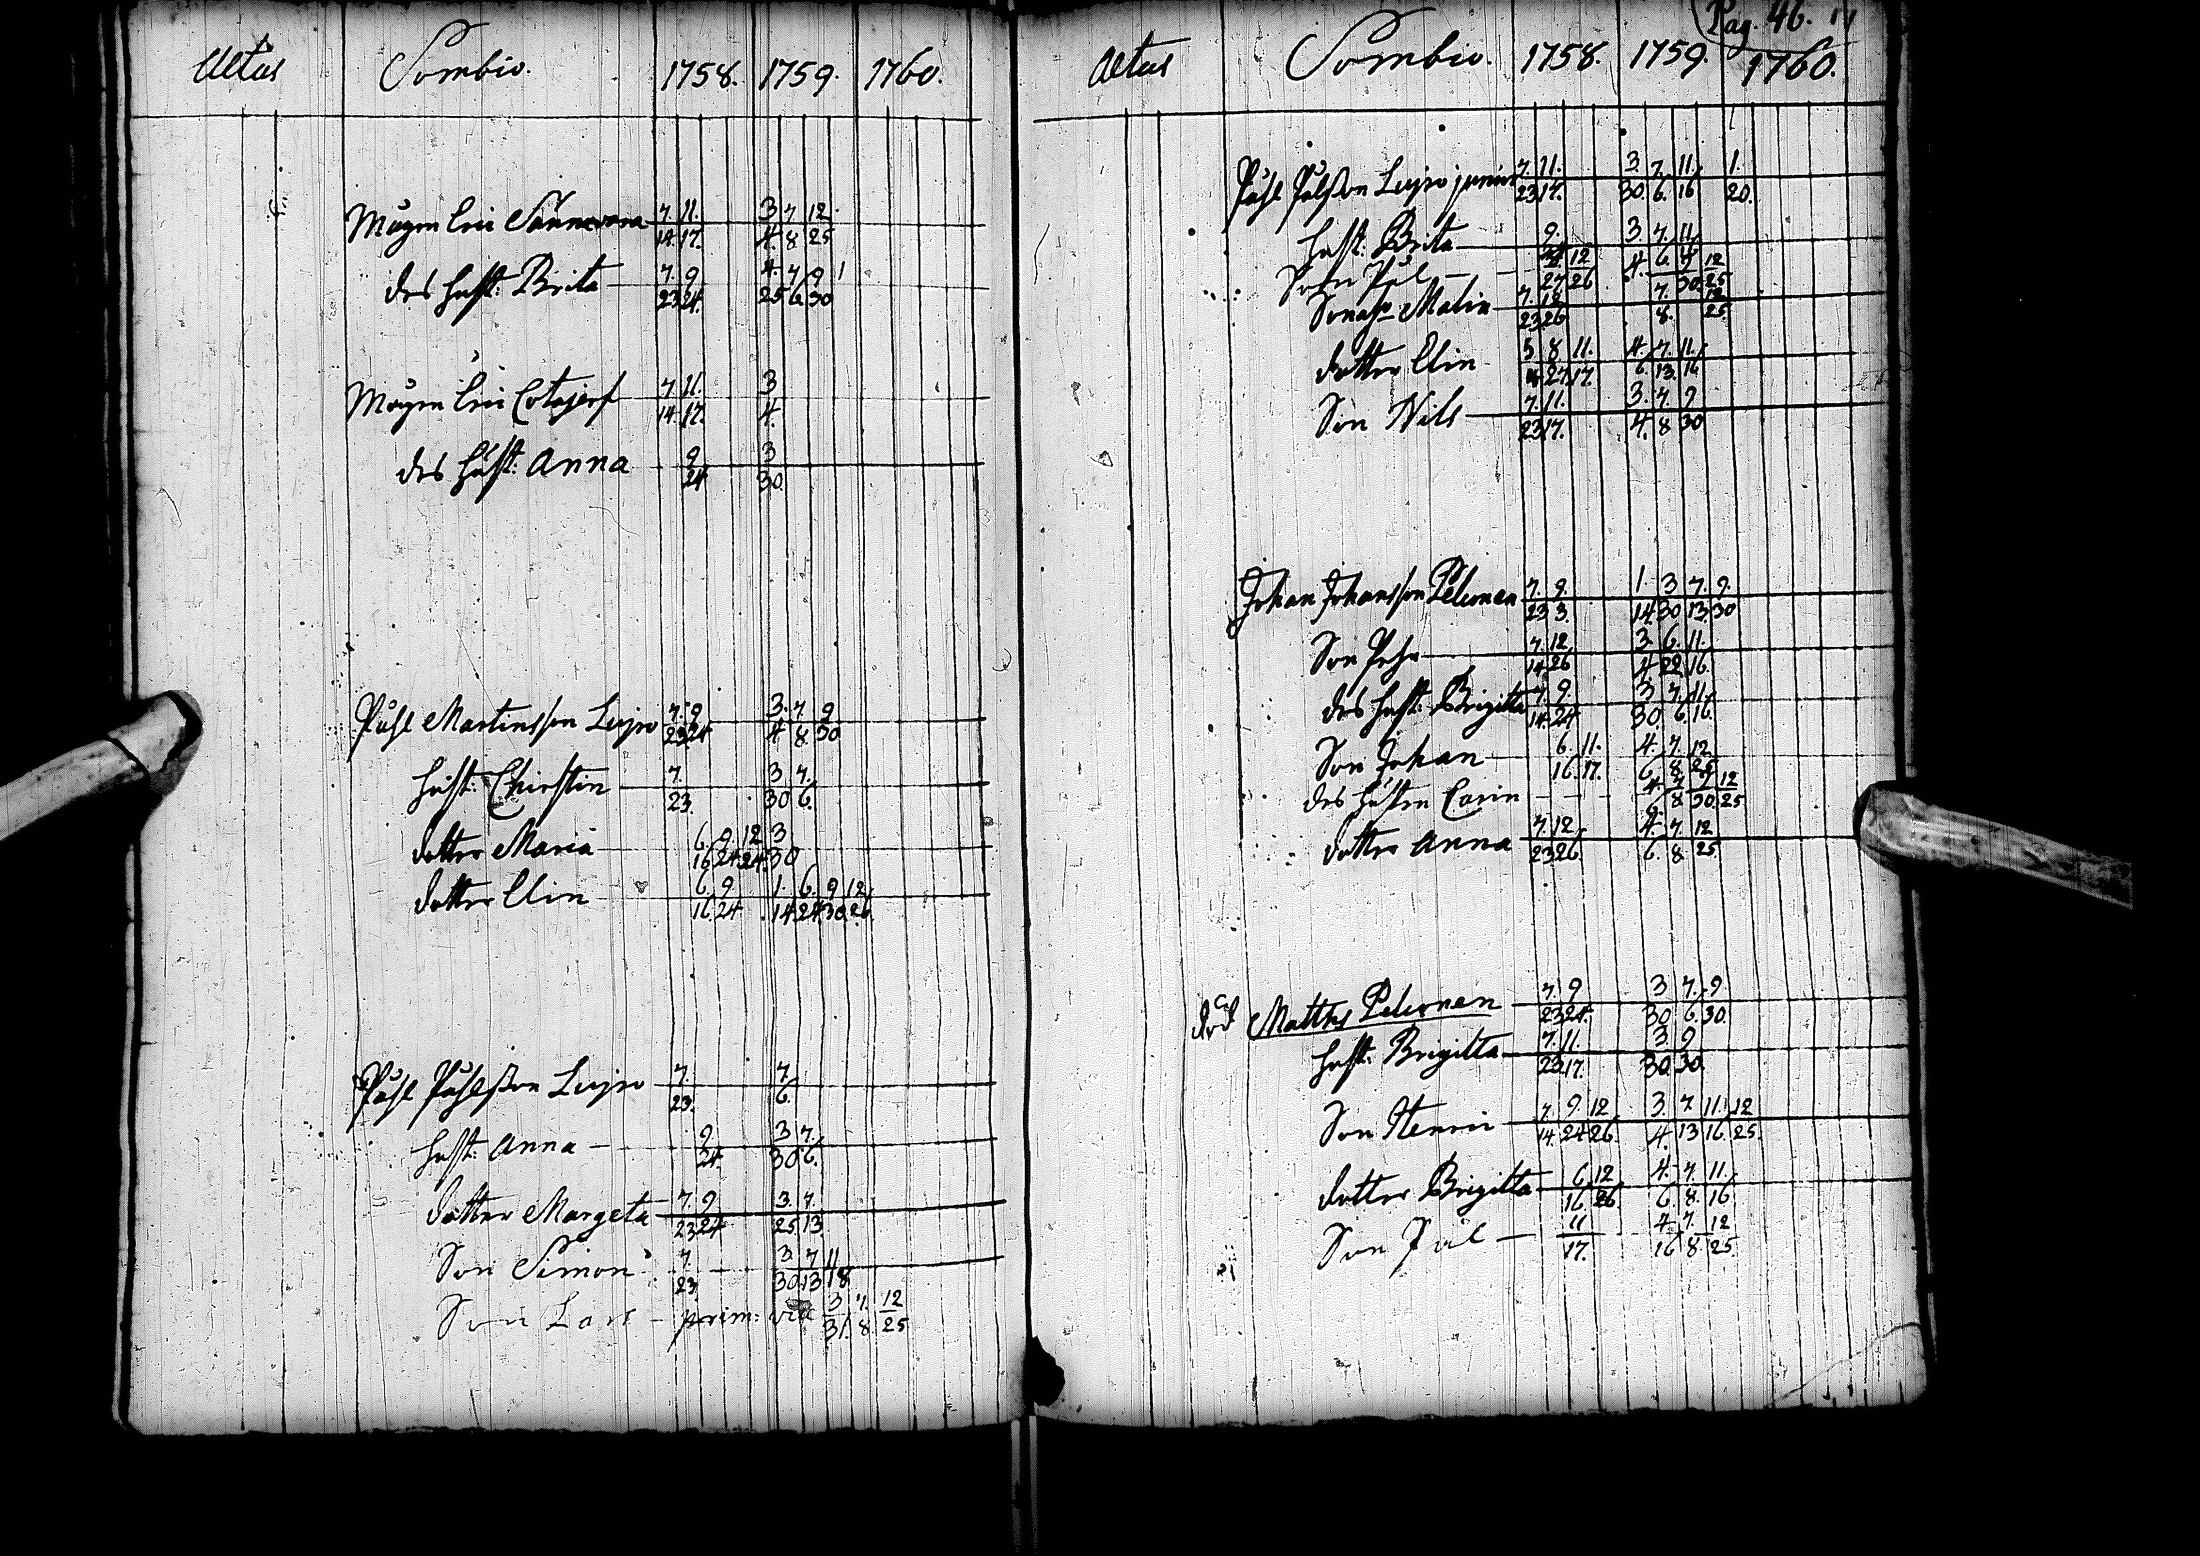 Aetas Sombio. 1758. 1759. 1760.
Mågen Eric 7. 11. 3 7 12
14. 17. 4. 8 25
des hust: Brita 7. 9 4. 7 9 1
23 24. 25 6 30
Mågen Eric 7 11. 3
14. 17. 4.
des hust: Anna 9 3
24 30
Påhl Martinsson Lejpo 7. 9 3. 7. 9
23 24 4 8. 30
hust: Chirstin 7. 3 7.
23. 30 6.
dotter Maria 6 9 12 3
16 24 24. 30
dotter Elin 6 9. 1. 6. 9 12
16 24 14 24 30 26
Påhl Påhlsson Lejpo 7. 7.
23. 6.
hust: Anna 9 3 7.
24. 30 6.
dotter Margeta 7. 9 3. 7.
23 24 25 13
Son Simon 7. 3 7 11
23. 30 13 18
Son Lars - prim: vice 3 7. 12
31. 8. 25
Pag. 46.
Aetas Sombio. 1758. 1759. 1760.
Påhl Pålsson Lejpo junior 7. 11. 3 7. 11. 1.
23 17. 30. 6. 16 20.
hust: Brita 9. 3. 7. 11.
24 4. 6. 16
Son Pål 12 9 12
27 26 30 25
Sonah: Malin 7. 12 7. 12
23 26 8. 25
dotter Elin 5 8 11. 4. 7. 11.
4 27 17. 6. 13. 16
Son Nils 7. 11. 3. 7. 9
23 17. 4. 8 30
Johan Johansson Pelconen 7. 9. 1. 3 7. 9.
23 3. 14 30 13 30
Son Pehr 7. 12 3 6. 11.
14. 26 4 22 16.
des hust: Brigitta 7. 9. 3 7. 11.
14. 24 30 6 16.
Son Johan 6. 11. 4. 7. 12
16. 17. 6 8 25
des hustru Carin 4. 7 9 12
6. 8 30 25
dotter Anna 7. 12 4. 7. 12
23 26 6. 8 25
död Matths Pelconen 7. 9 3 7. 9
23 24. 30 6. 30
hust: Brigitta 7. 11. 3 9
23 17. 30. 30
Son Henric 7. 9. 12 3. 7. 11. 12
14. 24 26 4. 13 16. 25.
dotter Brigitta 6 12 4. 7. 11.
16 26 6. 8. 16
Son Pål 11 4 7. 12
17. 16 8. 25